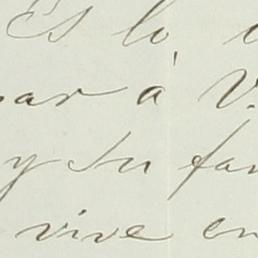 Es lo
ar á V.
y su fam
vive en